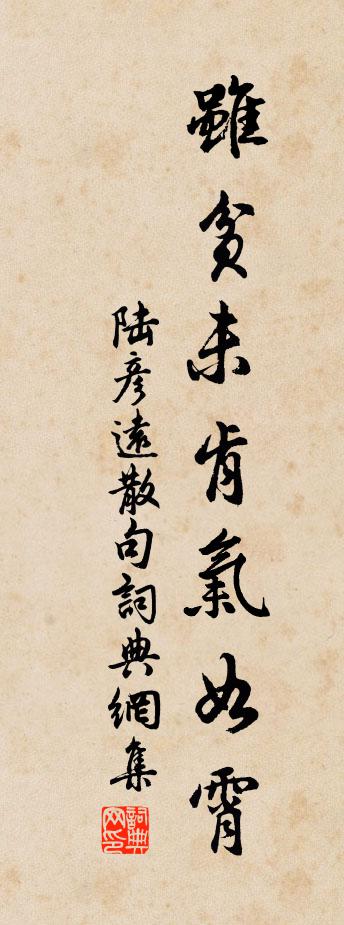 雖貧未肯氣如霄
陸彥遠散句詞典網集
詞典网印